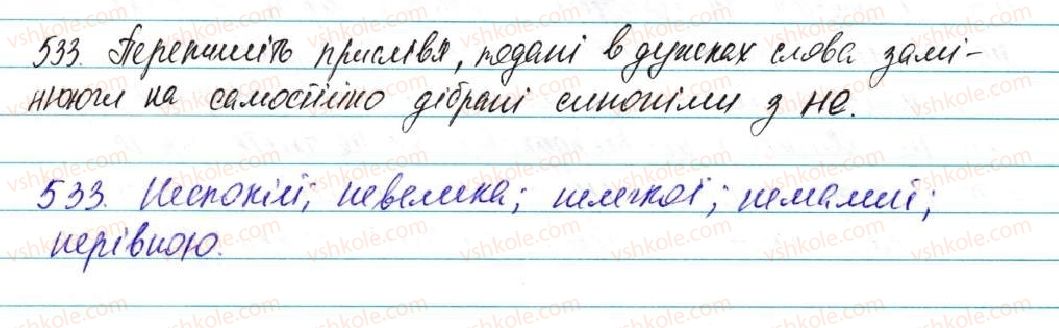 533. Перепишіть прислів'я, подані в дужках слова замі-
нюючи на самостійно дібрані синоніми з не.
533. Неспокій; невелика; нелегкої; немалий;
нерівною.